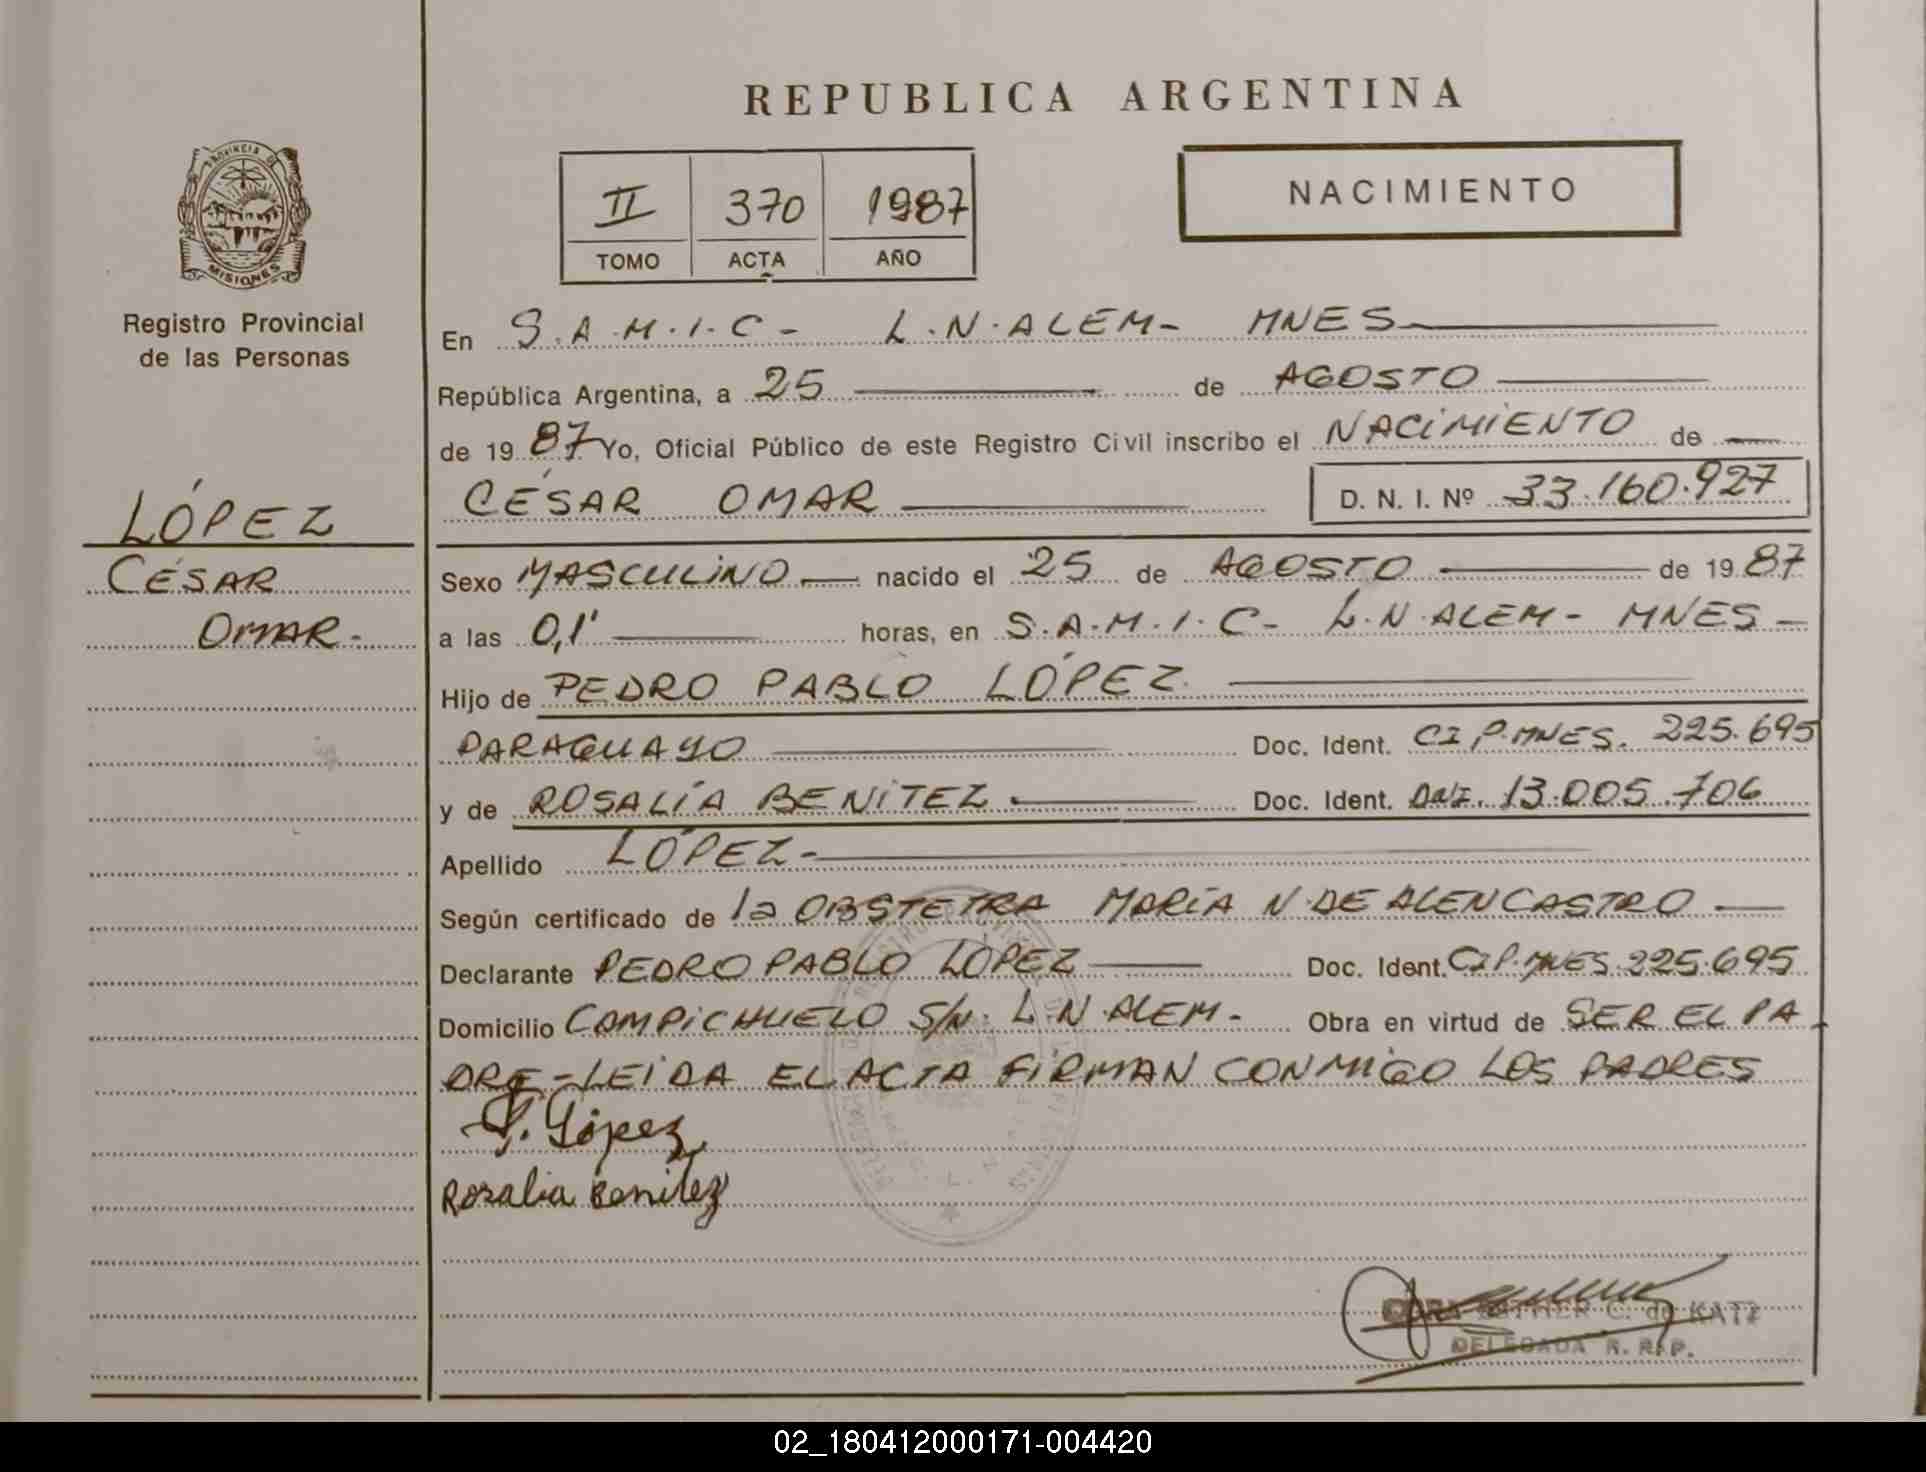 REPUBLICA ARGENTINA
PROVINCIA DE
MISIONES
Registro Provincial
de las Personas
II 370 1987
TOMO ACTA AÑO
NACIMIENTO
En S.A.M.I.C- L.N.ALEM- MNES
República Argentina, a 25 de AGOSTO
de 1987 Yo, Oficial Público de este Registro Civil inscribo el NACIMIENTO de
CÉSAR OMAR D. N. I. Nº 33.160.927
LÓPEZ
CÉSAR
OMAR-
Sexo MASCULINO nacido el 25 de AGOSTO de 1987
a las 0,1' horas, en S.A.M.I.C- L.N.ALEM- MNES-
Hijo de PEDRO PABLO LÓPEZ
PARAGUAYO Doc. Ident. CI P.MNES. 225.695
y de ROSALÍA BENÍTEZ Doc. Ident. D.N.I. 13.005.706
Apellido LÓPEZ-
Según certificado de la OBSTETRA MARÍA N.DE ALENCASTRO
Declarante PEDRO PABLO LÓPEZ Doc. Ident. CI P.MNES 225.695
Domicilio CAMPICHUELO S/N. L.N.ALEM- Obra en virtud de SER EL PA-
DRE-LEIDA EL ACTA FIRMAN CONMIGO LOS PADRES
P. López
Rosalia Benitez
ESTHER C. de KATZ
DELEGADA R. P. P.
02_180412000171-004420